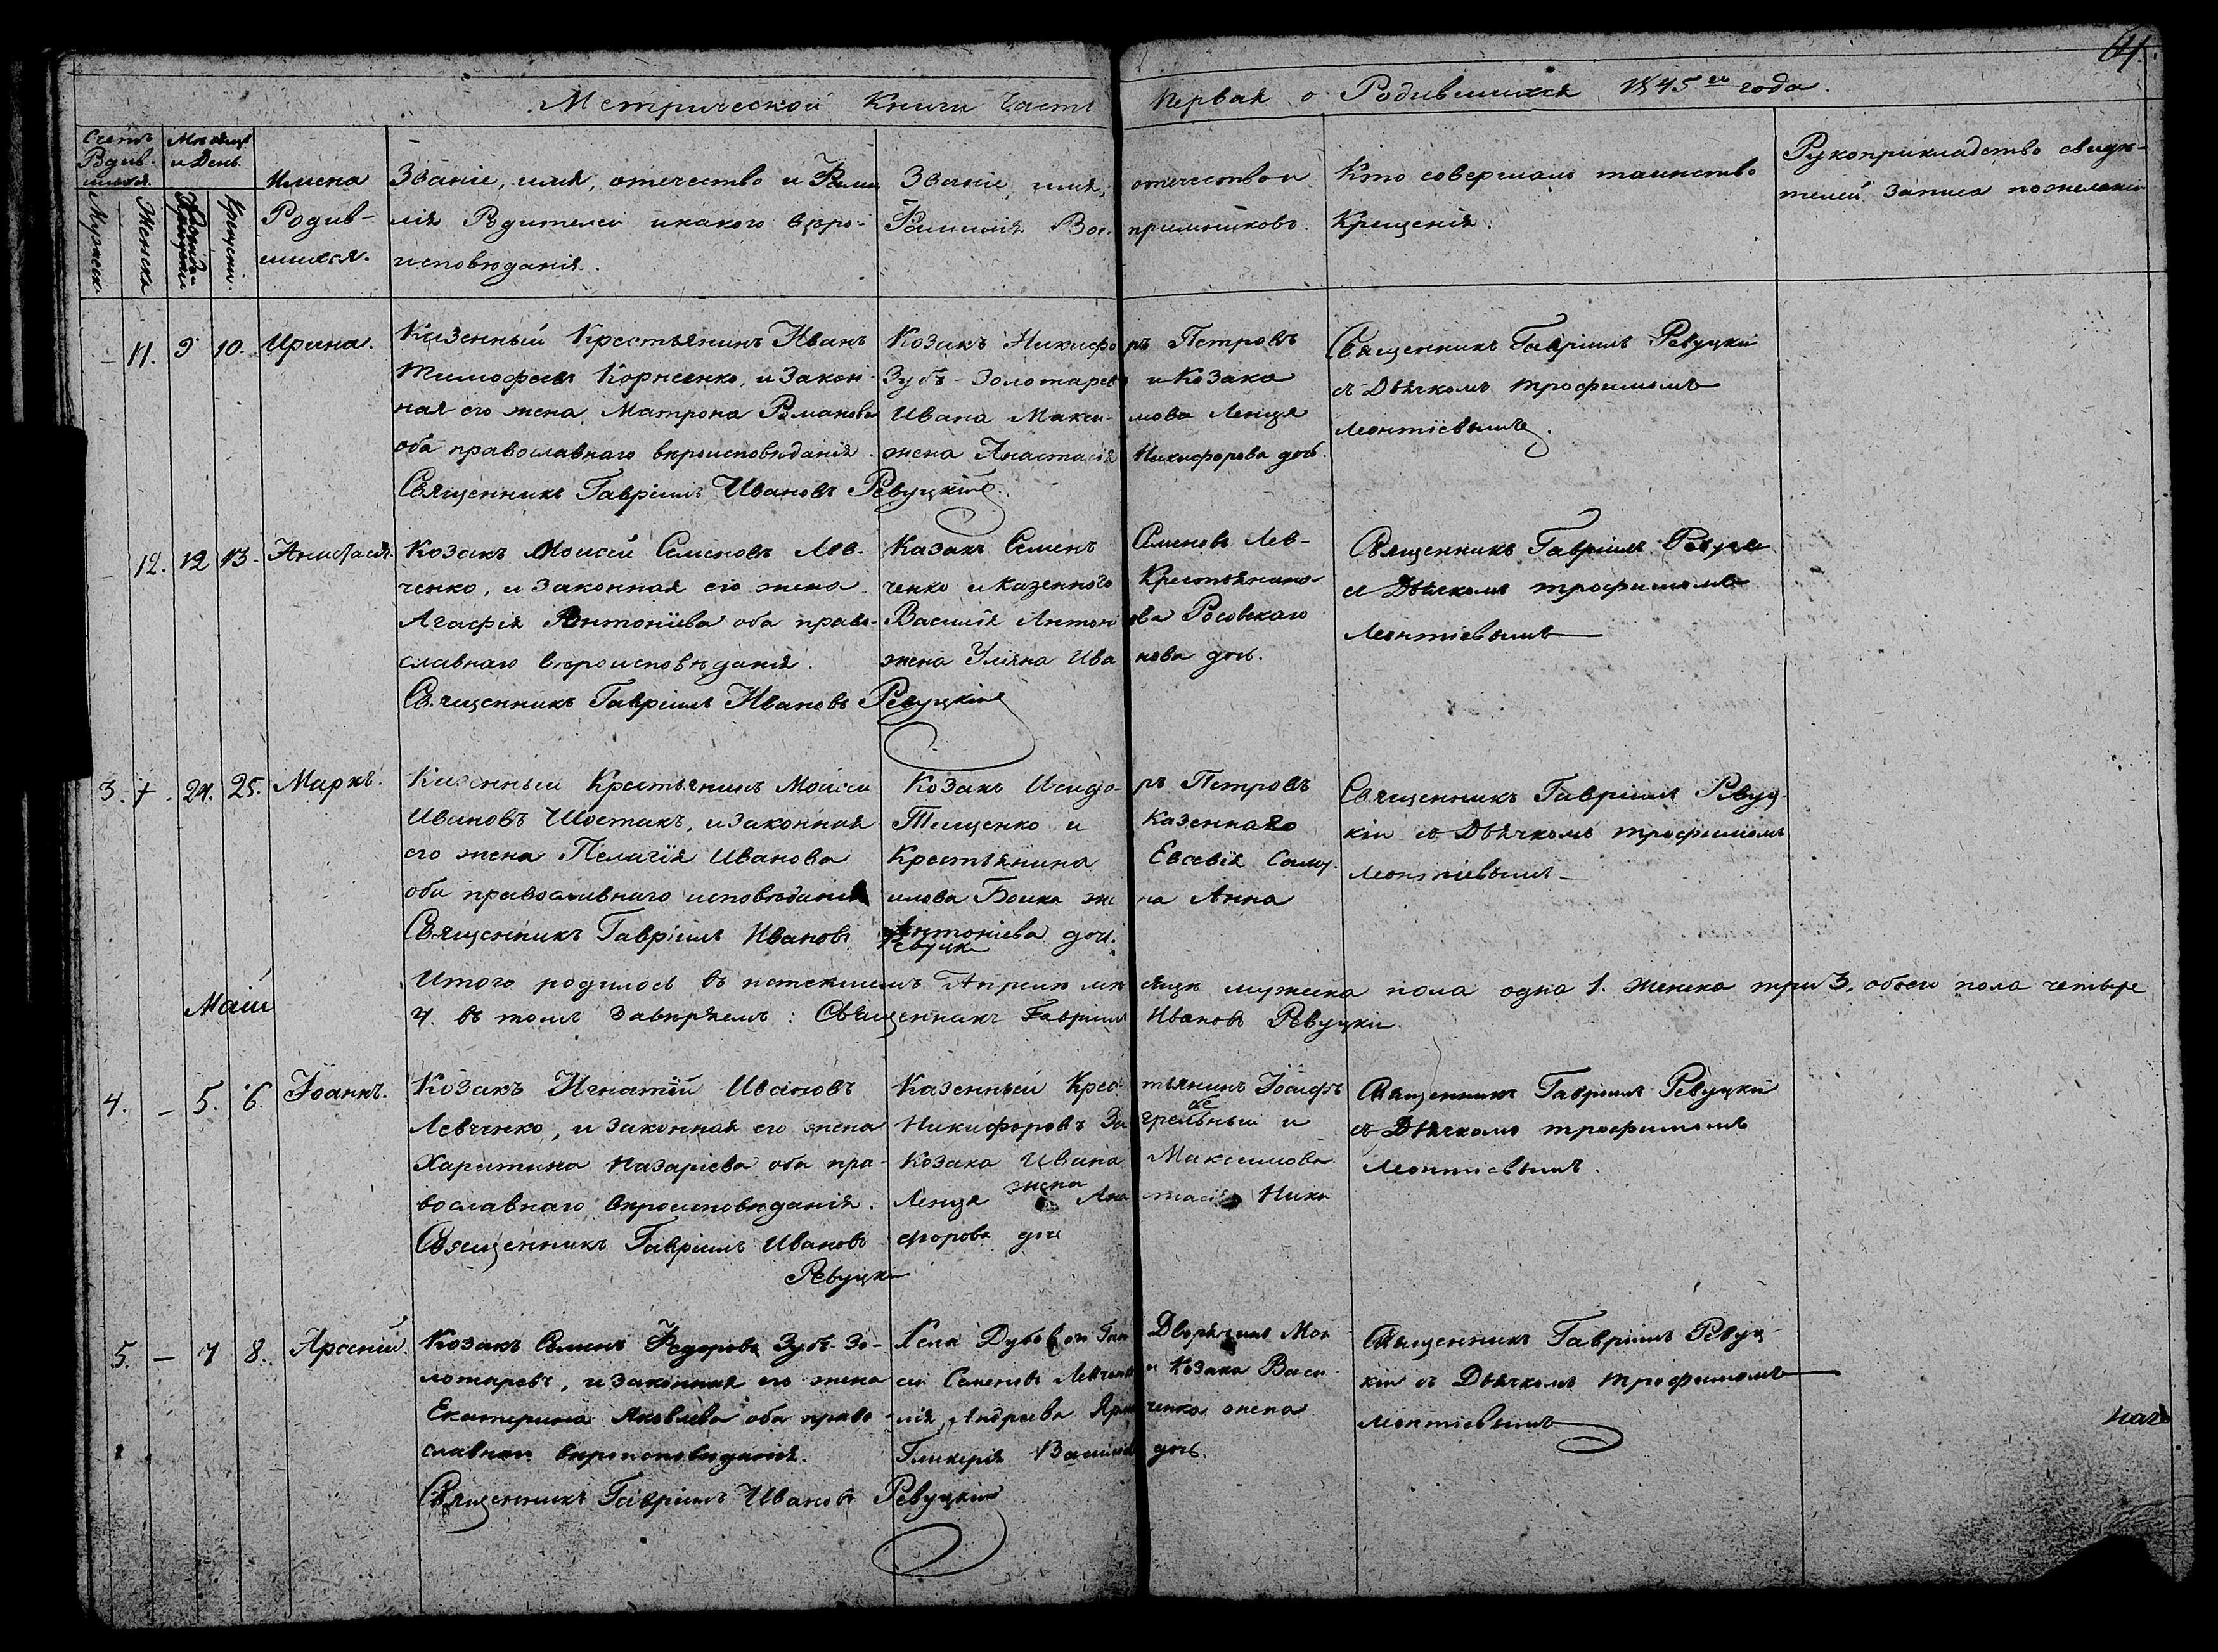 Метрической Книги Часть Первая о Родившихся 1845го года.
Счетъ Родив-шихся
Мужеск.
Женска
Мѣсяцъ и День
Крещения.
Имена
Родив-
шихся.
Званіе, имя, отечество и Фами
лія Родителей и какого вѣро-
исповѣданія.
Званіе, имя, отечество и
Фамилія Вос. приемниковъ.
Кто совершалъ таинство
Крещенія.
Рукоприкладство свидѣ-
телей записа по желанію
11. 9 10. Ирина.
Казенный Крестьянинъ Иванъ
Тимофеевъ Корнеенко, и Закон-
ная его жена Матрона Романова
оба православнаго вѣроисповѣданія.
Священникъ Гавріилъ Ивановъ Ревуцкій
Козакъ Никифоръ Петровъ
Зубъ-Золотаревъ и Козака
Ивана Макси- мова Ленця
жена Анастасія Никифорова дочь.
Священникъ Гавріилъ Ревуцкій
съ Дьячкомъ Трофимомъ
Леонтіевымъ.
12. 12 13. Анастасія.
Козакъ Моисей Семеновъ Лев-
ченко, и Законная его жена
Агафія Антоніева оба право-
славнаго вѣроисповѣданія.
Священникъ Гавріилъ Ивановъ Ревуцкій
Казакъ Семенъ Семеновъ Лев-
ченко и Казенного Крестьянина
Василія Антонова Росовскаго
жена Уліяна Ива нова дочь.
Священникъ Гавріилъ
съ Дьячкомъ Трофимомъ
Леонтіевымъ
3. + 24. 25. Маркъ.
Казенный Крестьянинъ Моисей
Ивановъ Шостакъ, и Законная
его жена Пелагія Иванова
оба православнаго исповѣданія
Священникъ Гавріилъ Ивановъ Ревуцкі
Козакъ Исидо- ръ Петровъ
Тещенко и Казеннаго
Крестьянина Евсевія Саму.
илова Боика же на Анна
Антоніева дочь.
Священникъ Гавріилъ Ревуц-
кій съ Дьячкомъ Трофимомъ
Леонтіевымъ
Итого родилось въ истекшемъ Апрелѣ мѣ сяцѣ мужеска пола одна 1. женска три 3. обоего пола четыре
4. въ томъ завѣряемъ: Священникъ Гавріилъ Ивановъ Ревуцкій
Маій
4. - 5. 6. Іоаннъ.
Козакъ Игнатій Ивановъ
Левченко, и Законная его жена
Харитина Назаріева оба пра-
вославнаго вѣроисповѣданія.
Священникъ Гавріилъ Ивановъ
Ревуцкі
Казенный Крес тьянинъ Іосифъ
Никифоровъ Загребельный и
Козака Ивана Максимова
Ленця жена Анастасія Ники
форова дочь
Священникъ Гавріилъ Ревуцкій
съ Дьячкомъ Трофимомъ
Леонтіевымъ.
5. - 7 8. Арсеній.
Козакъ Семенъ Федоровъ Зубъ-Зо-
лотаревъ, и Законная его жена
Екатерина Яковлева оба право-
славнаго вѣроисповѣданія.
Священникъ Гавріилъ Ивановъ Ревуцкій
Дворянинъ Мои
сей Семеновъ Левченко и Козака Васи-
лія Андреева жена
Гликерія дочь.
Священникъ Гавріилъ Ревуц-
кій съ Дьячкомъ Трофимомъ
Леонтіевымъ